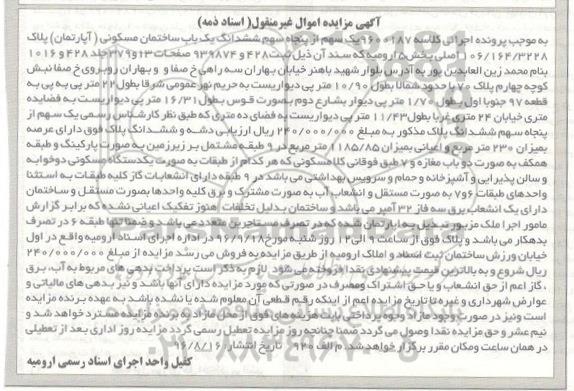 آگهی مزایده اموال غیرمنقول( اسناد ذمه)
به موجب پرونده اجرائی کلاسه ۹۶۰۰۱۸۷ یک سهم از پنجاه سهم ششدانگ یک باب ساختمان مسکونی ( آپارتمان) پلاک
۰۶/۱۶۴/۳۲۲۸ اصلی بخش ۵ ارومیه که سند آن ذیل ثبت ۴۲۸ و ۹۳۹۸۷۴ صفحات ۱۳و۳۷۹ جلد ۴۲۸ و ۱۰۱۶
بنام محمد زین العابدین پور به آدرس بلوار شهید باهنر خیابان بهاران سه راهی خ صفا و بهاران روبروی خ صفا نبش
کوچه چهارم پلاک ۷۰ با حدود شمالا بطول ۱۰/۹۰ متر پی دیواریست به حریم نهر عمومی شرقا بطول ۲۲ متر پی به پی به
قطعه ۹۷ جنوبا اول بطول ۱/۷۰ متر پی دیوار بشارع دوم بصورت قوس بطول ۱۶/۳۱ متر پی دیواریست به فضایده
متری خیابان ۲۴ متری غربا بطول ۱۱/۴۳ متر پی دیواریست به فضای ده متری که طبق نظر کارشناس رسمی یک سهم از
پنجاه سهم ششدانگ پلاک مذکور به مبلغ ۲۴۰/۰۰۰/۰۰۰ ریال ارزیابی شده و ششدانگ پلاک فوق دارای عرصه
بمیزان ۲۳۰ متر مربع و اعیانی بمیزان ۱۱۸۵/۸۵ متر مربع در ۹ طبقه مشتمل بر زیرزمین به صورت پارکینگ و طبقه
همکف به صورت دو باب مغازه و ۷ طبق فوقانی کلا مسکونی که هر کدام از طبقات به صورت یکدستگاه مسکونی دوخوابه
و سالن پذیرایی و آشپزخانه و حمام و سرویس بهداشتی می باشد در ۹ طبقه دارای انشعابات گاز کلیه طبقات به استثنا
واحدهای طبقات ۶و۷ به صورت مستقل و انشعاب آب به صورت مشترک و برق کلیه واحدها بصورت مستقل و ساختمان
دارای یک انشعاب برق سه فاز ۳۲ آمپر می باشد و ساختمان بدلیل تخلفات هنوز تفکیک اعیانی نشده که برابر گزارش
مامور اجرا ملک مزبور تبدیل به آپارتمان شده که در تصرف مستاجرین متعدد می باشد و ضمنا تنها طبقه ۶ در تصرف
بدهکار می باشد و پلاک فوق از ساعت ۹ الی ۱۲ روز شنبه مورخ ۹۶/۹/۱۸ در اداره اجرای اسناد ارومیه واقع در اول
خیابان ورزش ساختمان ثبت اسناد و املاک ارومیه از طریق مزایده به فروش می رسد مزایده از مبلغ ۲۴۰/۰۰۰/۰۰۰
ریال شروع و به بالاترین قیمت پیشنهادی نقدا فروخته می شود لازم به ذکر است پرداخت بدهی های مربوط به آب، برق
، گاز اعم از حق انشعاب و یا حق اشتراک ومصرف در صورتی که مورد مزایده دارای آنها باشد و نیز بدهی های مالیاتی و
عوارض شهرداری و غیره تا تاریخ مزایده اعم از اینکه رقم قطعی آن معلوم شده یا نشده باشد به عهده برنده مزایده
است ونیز در صورت وجود مازاد وجوه پرداختی بابت هزینه های فوق از محل مازاد به برنده مزایده مسترد خواهد شد و
نیم عشر و حق مزایده نقدا وصول می گردد ضمنا چنانچه روز مزایده تعطیل رسمی گردد مزایده روز اداری بعد از تعطیلی
در همان ساعت ومکان مقرر برگزار خواهد شد. م الف ۹۲۰ تاریخ انتشار: ۹۶/۸/۱۶
کفیل واحد اجرای اسناد رسمی ارومیه